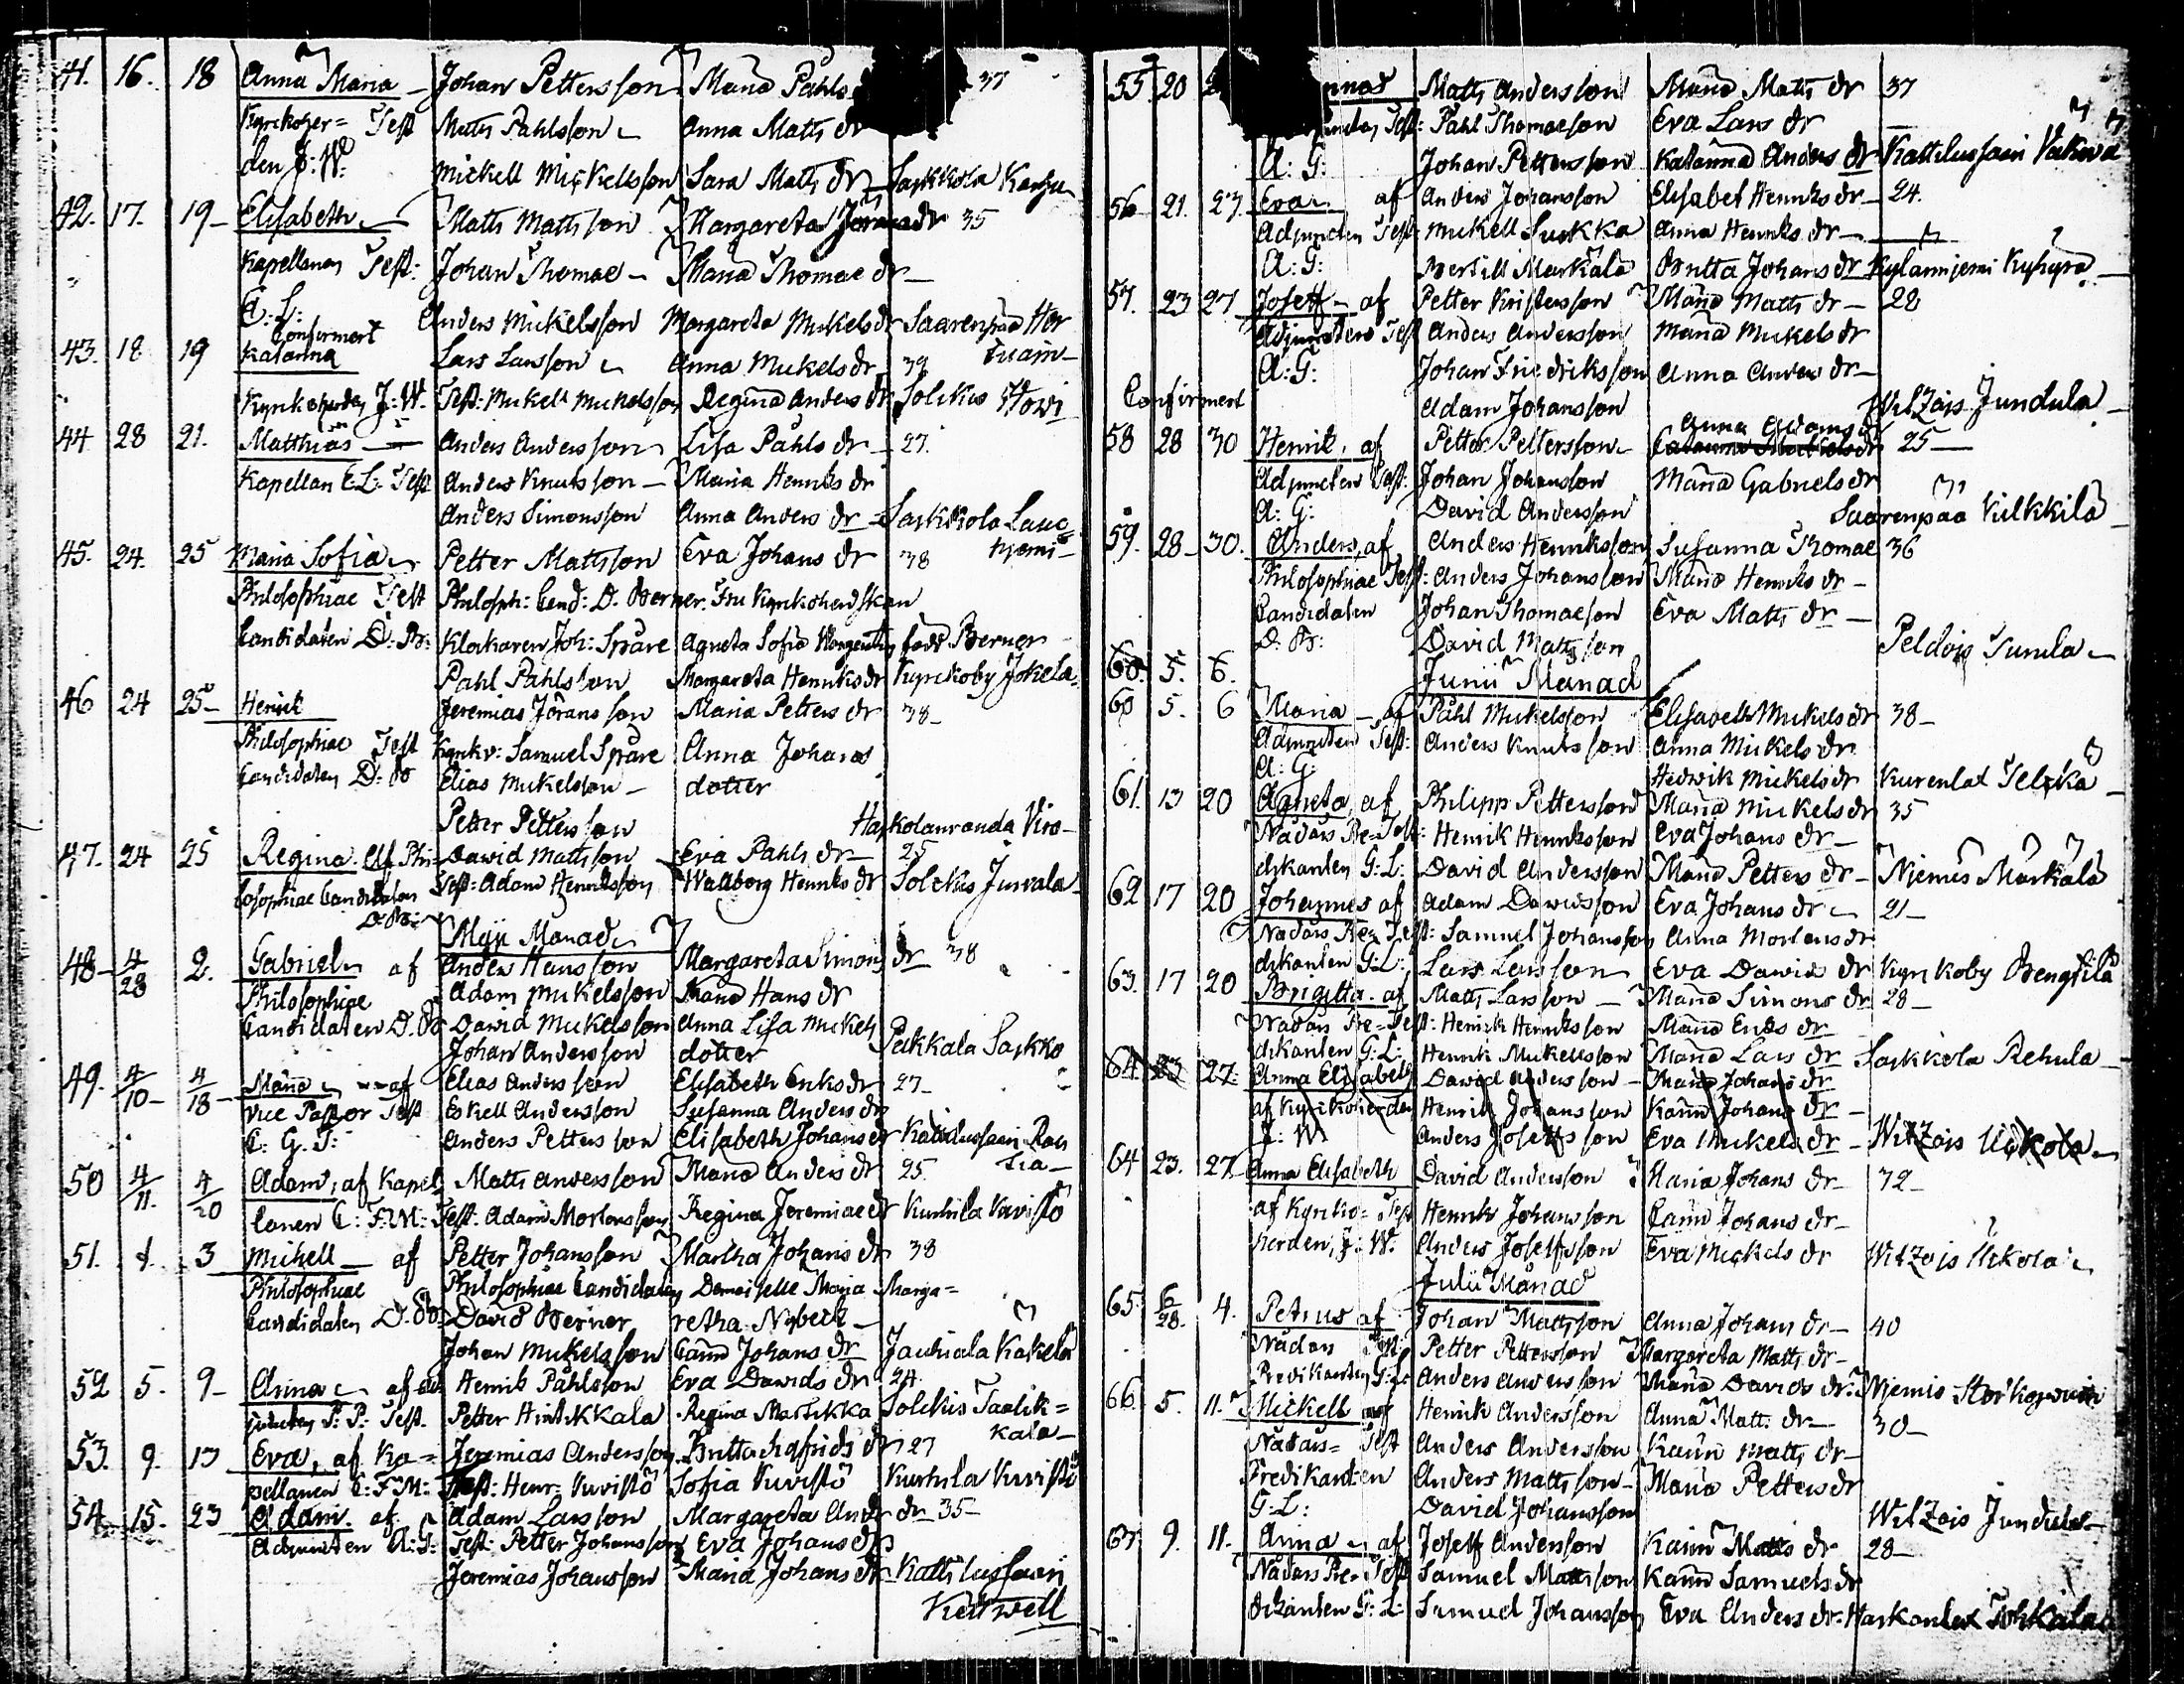 41. 16. 18 Anna Maria Johan Pettersson Maria Påhls 37
Kyrckoher= Test Matts Påhlsson Anna Matts dr
den J: W: Mickell Mickellsson Sara Matts dr Särkkola
42. 17. 19 Elisabeth Matts Mattsson Margareta Jörans dr 35
Kapellanen Test: Johan Thomae Maria Thomae dr
C: L: Anders Mickelsson Margareta Mickels dr Saarenpää
Confirmert
43. 18 19 Katarina Lars Larsson Anna Mickels dr 39
Kyrkoherden J: W. Test: Mickel Mickelsson Regina Anders dr Solckis
44 28 21. Matthias Anders Andersson Lisa Påhls dr 27.
Kapellan C: L: Test Anders Knutsson Maria Henriks dr
Anders Simonsson Anna Anders dr Särkkola
45. 24. 25 Maria Sofia Petter Mattsson Eva Johans dr 38
Philosophiae Test Philosoph: Cand: D. Berner. Fru Kyrkoherdskan
Candidaten D: B: Klåckaren Joh: Spåre Agneta Sofia född Berner
Påhl Påhlsson Margareta Henriks dr Kyrckoby Jokela
46 24 25 Henrik Jeremias Jöransson Maria Petters dr 38
Philosophiae Test Kyrkv: Samuel Spåre Anna Johans
Candidaten D: B Elias Mickelsson dotter
Petter Pettersson
47. 24 25 Regina. af Phi- David Mattsson Eva Påhls dr 25
losophiae Candidaten Test: Adam Henriksson Wallborg Henriks dr Solckis Juvala
D: B:
Maji Månad
48 4/28 2. Gabriel af Anders Hansson Margareta Simons dr 38
Philosophiae Adam Mickelsson Maria Hans dr
Candidaten D. B David Mickelsson Anna Lisa Mickels
Johan Andersson dotter Pekkala Sarkko
49. 4/10 4/18 Maria af Elias Andersson Elisabeth Eriks dr 27
Vice Pastor Test Eskell Andersson Susanna Anders dr
C: G. T: Anders Pettersson Elisabeth Johans dr Kattilussaari
50 4/11. 4/20 Adam, af Kapel= Matts Andersson Maria Anders dr 25.
lanen C: F: M: Test: Adam Mortensson Regina Jeremiae dr Kurhila Kuvistö
51. 3 Mickell af Petter Johansson Martha Johans dr 38
Philosophiae Philosophiae Candidaten Demoiselle Maria Marga=
Candidaten D. B. David Berner retha Nybeck
Johan Mickelsson Carin Johans dr Jauhiala
52 5. 9 Anna af Henrik Påhlsson Eva Davids dr 24.
P: P: Test. Petter Hintikkala Regina Martikka Solckis Taalik=
kala
53. 9. 13 Eva, af Ka= Jeremias Andersson Britta Sigfrids dr 27
pellanen C: F: M: Test: Henr: Kuvistö Sofia Kuvistö Kurhila Kuvistö
54. 15. 23 Adam. af Adam Larsson Margareta And dr 35
Adjuncten A: G: Test: Petter Johansson Eva Johans dr
Jeremias Johansson Maria Johans dr Kattilussaari
55. 20 Matts Andersson Maria Matts dr 37
Test: Påhl Thomaeson Eva Lars dr
A: G: Johan Pettersson Katarina Anders dr Kattilussaari
56 21. 23. Eva af Anders Johansson Elisabet Henriks dr 24.
Adjuncten Test: Mickell Suckka Anna Henriks dr
A: G: Bertill Markala Britta Johans dr
57. 23 27 Joseff af Petter Kristersson Maria Matts dr 28
Adjunctens Test Anders Andersson Maria Mickels dr
A: G: Johan Friedriksson Anna Anders dr
Confirmert Adam Johansson Witzois Jundula
Anna Adams dr
58 28 30 Henrik, af Petter Pettersson 25
Adjuncten Test: Johan Johansson Maria Gabriels dr
A: G: David Andersson Saarenpää Kilkkilä
59. 28 30. Anders, af Anders Henriksson Susanna Thomae 36
Philosophiae Test: Anders Johansson Maria Henriks dr
Candidaten Johan Thomaeson Eva Matts dr
D: B: David Mattsson Peldois Sunila
60. 5. 6. Junii Månad
60 5. 6 Maria af Påhl Mickelsson Elisabeth Mickels dr 38
Adjuncten Test: Anders Knutsson Anna Mickels dr
A: G: Hedwik Mickels dr
61. 13 20 Agneta, af Philipp Pettersson Maria Mickels dr 35
Nådårs Pre= Test: Henrik Henriksson Eva Johans dr
dikanten G: L: David Andersson Maria Petters dr Niemis Markala
62 17 20 Johannes af Adam Davidsson Eva Johans dr 21
Nådårs Pre= Test: Samuel Johansson Anna Mortens dr
dikanten G: L: Lars Larsson Eva David dr Kyrkoby Bengtilä
63. 17 20 Brigitta. af Matts Larsson Maria Simons dr 28
Nådårs Pre= Test: Henrik Henriksson Maria Eriks dr
dikanten G: L: Henrik Mickelsson Maria Lars dr Särkkola Rehula
64 23 27. Anna Elisabeth David Andersson Maria Johans dr
af Kyrckoherden Henrik Johansson Karin Johans dr
J: W Anders Joseffsson Eva Mickels dr Witzois Uckola
64 23. 27. Anna Elisabeth David Andersson Maria Johans dr 32
af Kyrko= Test Henrik Johansson Carin Johans dr
herden, J: W. Anders Joseffsson Eva Mickels dr Witzois Uckola
Julii Månad
65. 6/28. 4. Petrus af Johan Mattsson Anna Johans dr 40
Nådårs Petter Pettersson Margareta Matts dr
Predikanten G: L: Anders Andersson Maria Davids dr
66. 5. 11. Mickell af Henrik Andersson Anna Matts dr 30
Nådårs= Test Anders Andersson Karin Matts dr
Predikanten Anders Mattsson Maria Petters dr
G: L: David Johansson Witzois Jundula
67. 9. 11. Anna af Joseff Andersson Karin Matts dr 28
Nådårs Pre= Test Samuel Mattsson Karin Samuels dr
dikanten G: L: Samuel Johansson Eva Anders dr